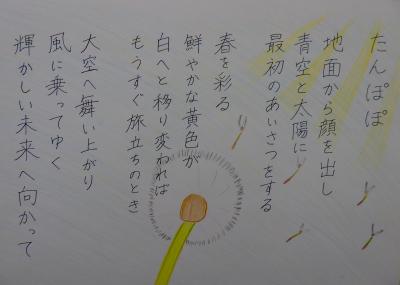 たんぽぽ
地面から顔を出し
青空と太陽に
最初のあいさつをする
春を彩る
鮮やかな黄色が
白へと移り変われば
もうすぐ旅立ちのとき
大空へ舞い上がり
風に乗ってゆく
輝かしい未来へ向かって